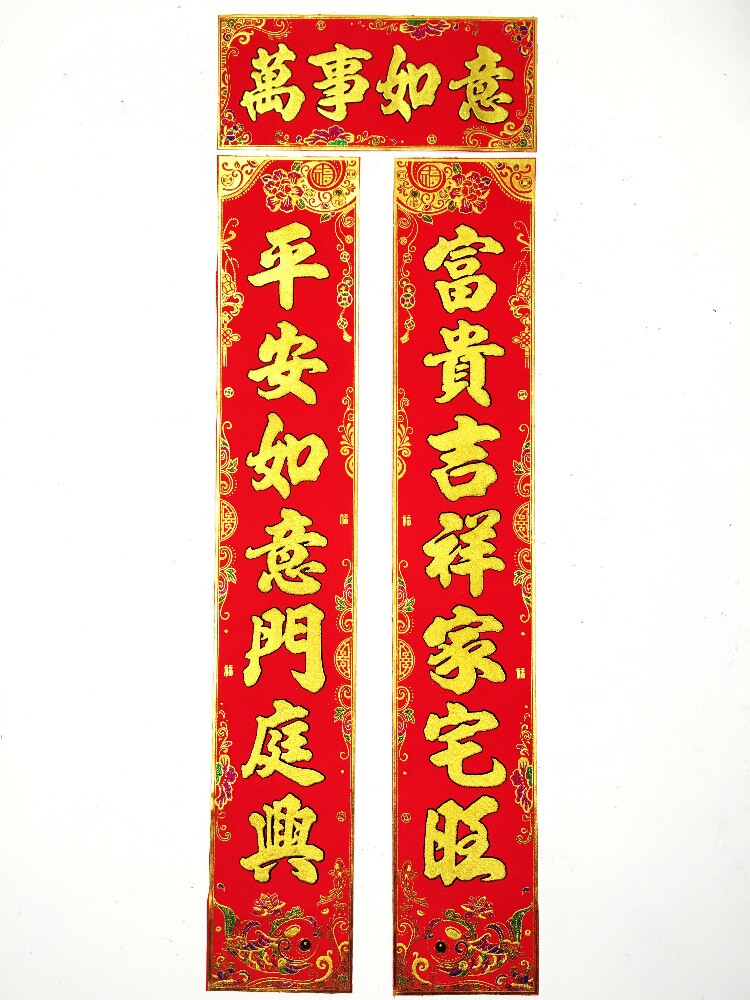 萬事如意
富貴吉祥家宅旺
平安如意門庭興
福
福
福
福
福
福